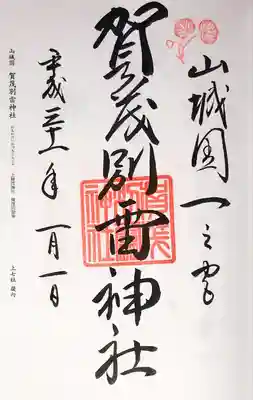 山城国一之宮
賀茂別雷神社
平成三十一年一月一日
山城国 賀茂別雷神社